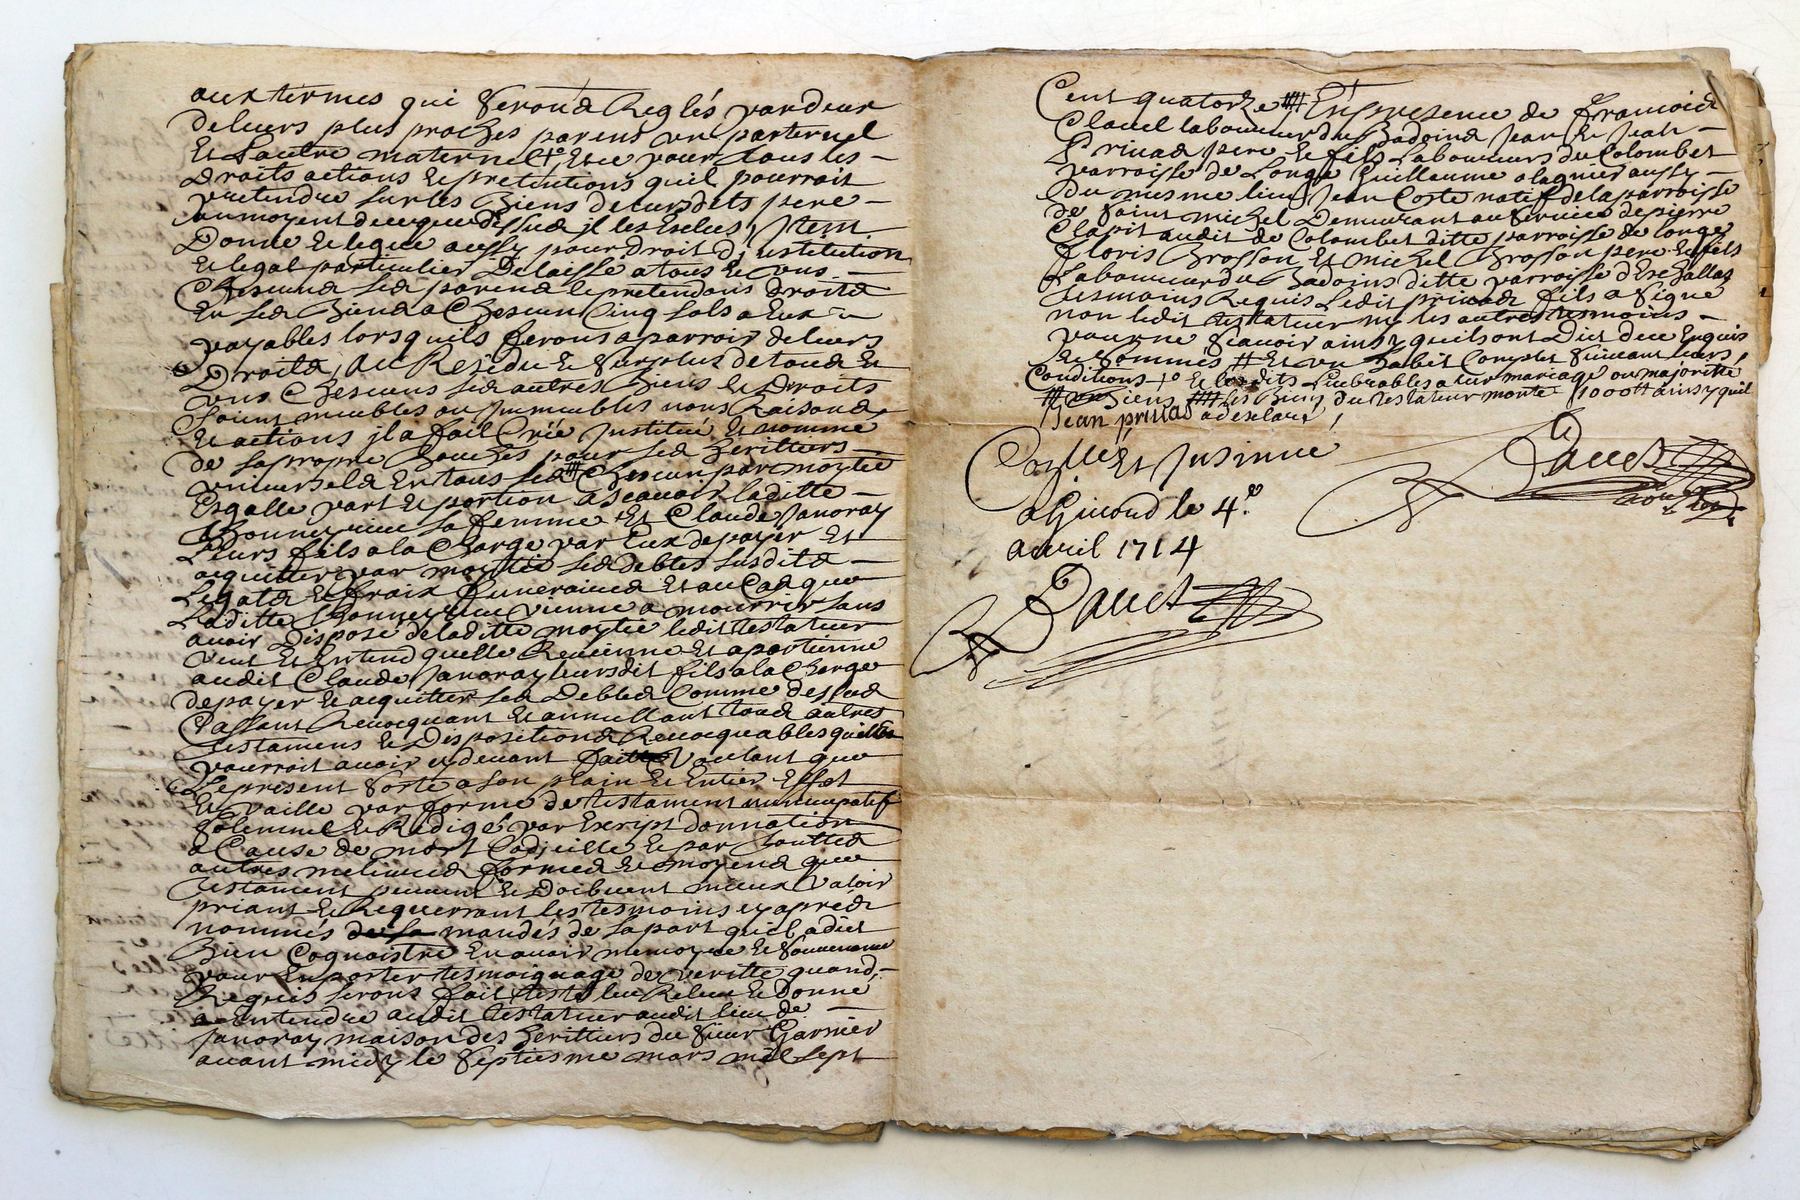 aux termes qui seront Reglés par deux
de leurs plus proches parens un paternel
Et Lautre maternel Et ce pour tous les
Droits actions Et pretentions quil pourroit
pretendre sur les Biens de leursdits pere
au moyent de ce que dessus jl les Exclus, Jtem
Donne Et legue aussy pour droit d'institution
Et legat particulier Delaisse a tous Et uns
Chescuns ses parens Et pretendans droits
En ses Biens a Chescun Cinq sols a Eux
payables lorsquils feront aparroir de leurs
Droits, Au Residu Et surplus de tous Et
uns Chescuns ses autres Biens Et Droits
soint meubles ou Jmmeubles noms Raisons
Et actions jl a fait Crée Jnstitué Et nomme
de sa propre Bouche pour ses heritiers
universels En tous ses Chescun par moytié
Esgalle part Et portion a scavoir laditte
Bonne sa femme Et Claude Janoray
Leurs fils a la Charge par Eux de payer Et
acquitter par moytié ses debtes susdits
Legats Et fraix funeraires Et au Cas que
Laditte Bonne vienne a mourrir sans
avoir Disposé de laditte moytié ledit testateur
veut Et Entend quelle Revienne Et apartienne
audit Claude Janoray leursdit fils a la Charge
de payer Et acquitter ses Debtes Comme dessus
Cassant Revocquant Et annullant tous autres
testamens Et Dispositions Revocquables quil
pourroit avoir cy devant faitte Voulant que
Le present sorte a son plain Et Entier Effet
Et vaille par forme de testament nuncupatif
solemnel Et Redigé par Escript donnation
a Cause de mort Codicille Et par touttes
autres melieures formes Et moyens que
testament peuvent Et Doibvent mieux valoir
priant Et Requerrant les tesmoins cy apres
nommés de sa mandés de sa part quil a dict
Bien Cognoistre En avoir memoyre Et souvenance
pour En porter tesmoignage de veritte quand
Requis seront fait leu Releu Et Donné
a Entendre audit testateur audit lieu de
Janoray maison des heritiers du sieur Garnier
avant midy le septiesme mars mil sept
Cent quatorze Enpresence de francois
Clavel laboureur du Badoins Jean Et Jean
Privas pere Et fils Laboureurs du Colombet
parroisse de Longe Guillaume alagnier aussy
du mesme lieu Jean Coste natif de la parroisse
de saint michel Demeurant au service de pierre
Chapit audit de Colombet ditte parroisse de longes
floris Brosson Et michel Brosson pere Et fils
Laboureur du Badoins ditte parroisse d'Eschallas
tesmoins Requis Ledit privas fils a signé
non ledit testateur ny les autres tesmoins
pour ne scavoir ainsy quils ont Dict de ce Enquis
Et sommés Et un habit Complet suivant leurs
Conditions Et lesdits a leur mariage ou majoritte
les Biens du testateur monte 1000 ainsy quil
Jean privas a desclaré,
Cozille Et Jnsinue
a Givord le 4e
avril 1714
Dauet
Dauet